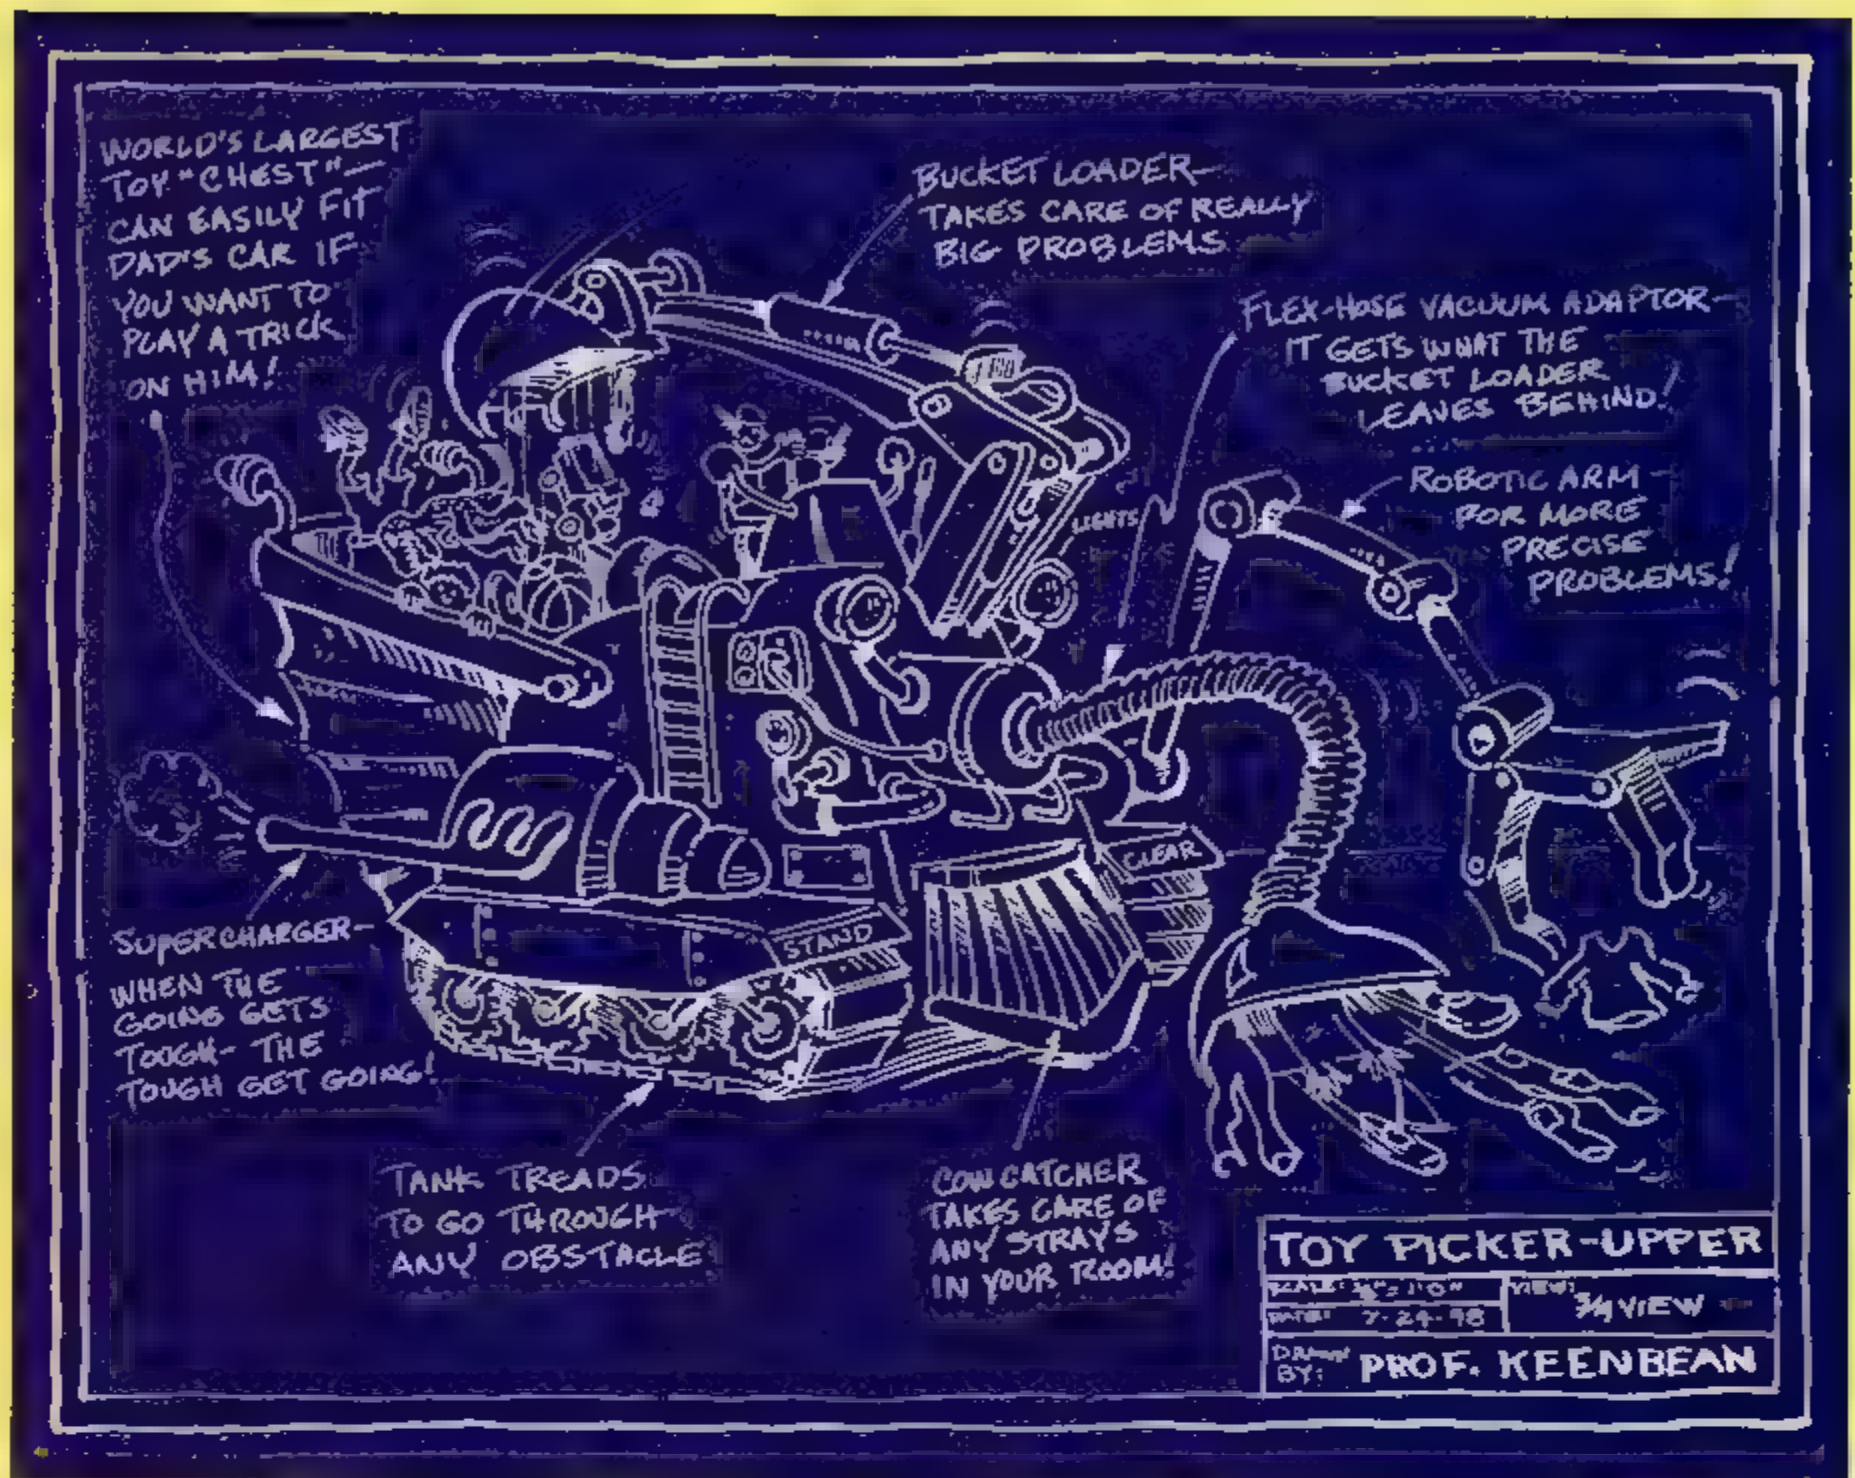 WORLD'S LARGEST
TOY "CHEST"—
CAN EASILY FIT
DAD'S CAR IF
YOU WANT TO
PLAY A TRICK
ON HIM!
BUCKET LOADER—
TAKES CARE OF REALLY
BIG PROBLEMS
FLEX-HOSE VACUUM ADAPTOR—
IT GETS WHAT THE
BUCKET LOADER
LEAVES BEHIND!
ROBOTIC ARM—
FOR MORE
PRECISE
PROBLEMS!
LIGHTS
CLEAR
STAND
SUPERCHARGER—
WHEN THE
GOING GETS
TOUGH- THE
TOUGH GET GOING!
TANK TREADS
TO GO THROUGH
ANY OBSTACLE
COW CATCHER
TAKES CARE OF
ANY STRAYS
IN YOUR ROOM!
TOY PICKER-UPPER
SCALE:
VIEW:
3/4 VIEW
DATE: 7-24-98
DRAWN
BY: PROF. KEENBEAN